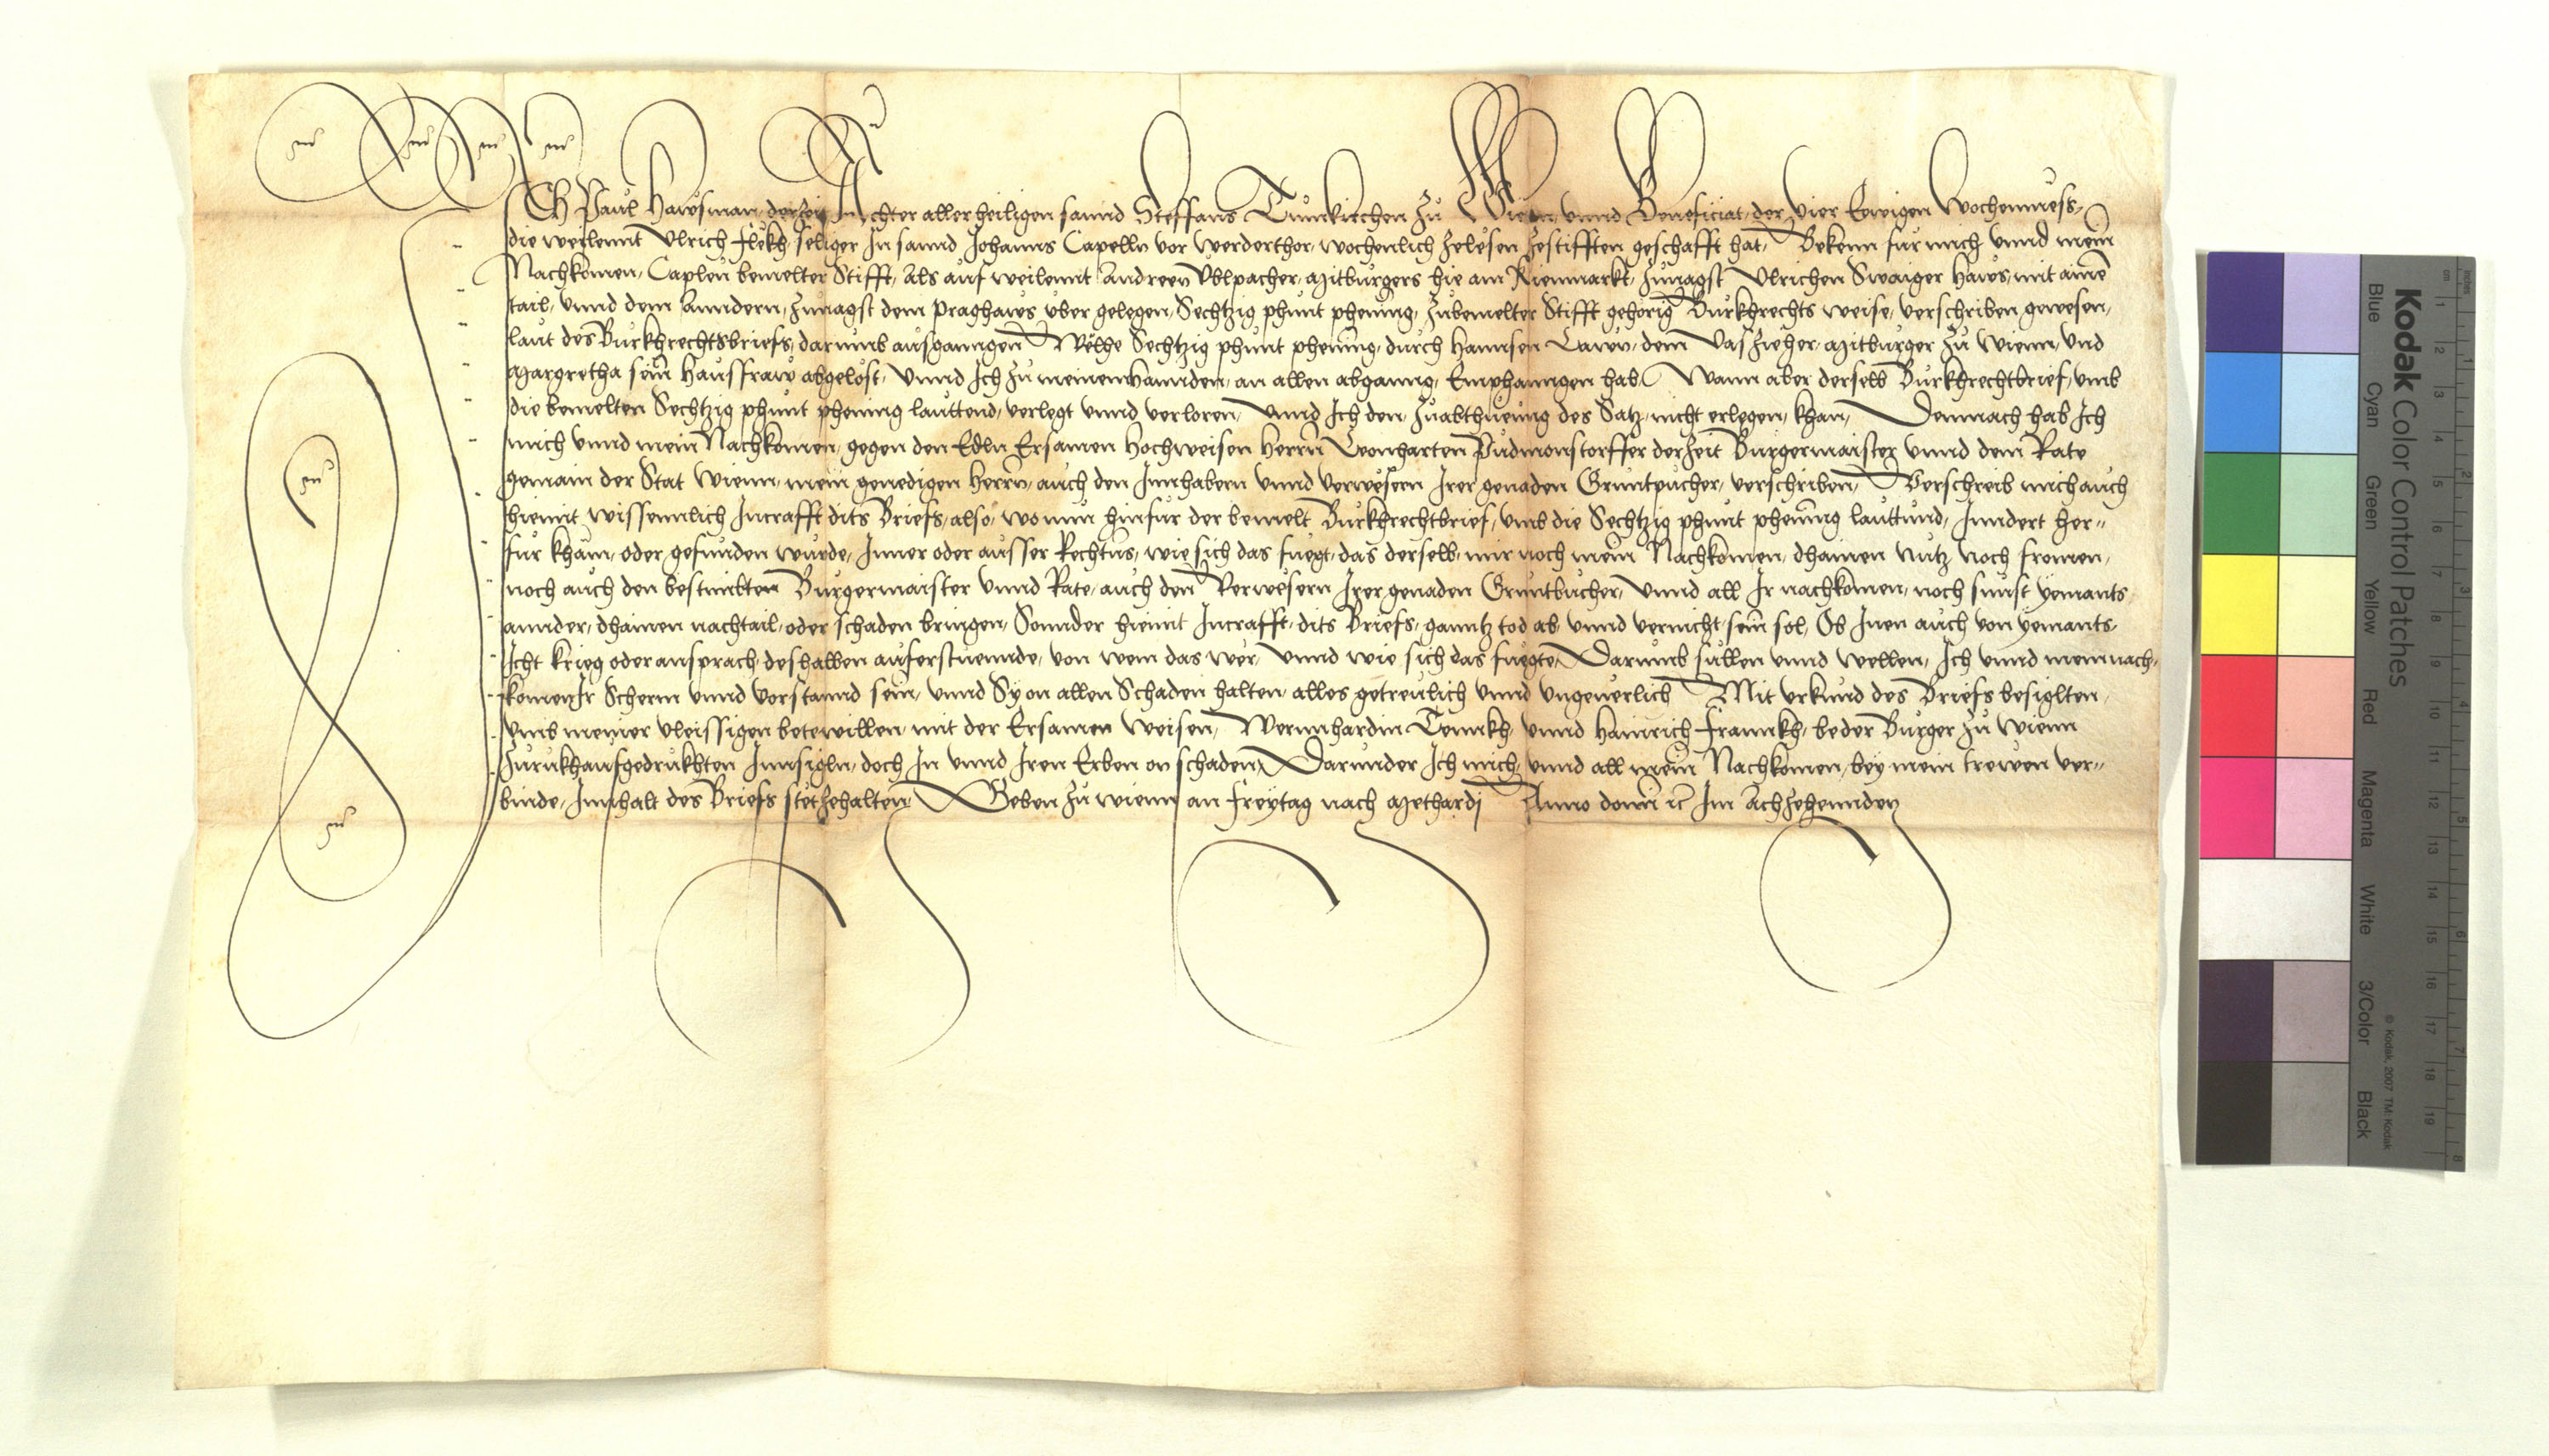 ICH Paul Hawsman, derzeit Achter aller heiligen sannd Steffans Tumkirchen zu Wienn, unnd Beneficiat, der Vier Ewigen Wochenmess,
die weylennt Ulrich Flekh seliger In sannd Johanns Capelln vor Werderthor, wochenlich zelesen zestifften geschafft hat, Bekenn fur mich unnd mein
Nachkomen, Caplen bemelter Stifft, Als auf weilennt Andreen Ublpacher, Mitburgers hie am Kienmarkt, zunagst Ulrichen Swaiger Haws, mit ainem
tail, unnd dem Anndern, zunagst dem Praghaws uber gelegen, Sechtzig phunt phening, zubemelter Stifft gehorig Burkhrechts weise, verschriben gewesen,
laut des Burkhrechtsbriefs, darumb ausganngen Welhe Sechtzig phunt phening, durch Hannsen Lawn, dem Vaszieher, Mitburger zu Wienn, und
Margretha sein Hausffraw abgelost, unnd Ich zu meinen Hannden, an allen abganng, Emphanngen hab, Wann aber derselb Burkhrechtbrief, umb
die bemelten Sechtzig phunt phening lauttend, verlegt unnd verloren, unnd Ich den, zuabthueung des Satz, nicht erlegen, khan, Demnach hab Ich
mich unnd mein Nachkomen, gegen den Edln Ersamen Hochweisen Herrn Leonharten Pudmonstorffer derzeit Burgermaister unnd dem Rate
gemain der Stat Wienn, mein genedigen Herrn, auch den Innhabern unnd verwesern Irer genaden Gruntpucher, verschriben, Verschreib mich auch
hiemit wissennlich Incrafft dits Briefs, also, wo nun hinfur der bemelt Burkhrechtbrief, umb die Sechtzig phunt phening lauttund, Inndert her-
fur kham, oder gefunden wurde, Inner oder ausser Rechtns, wie sich das fuegt, das derselb, mir noch mein Nachkomen, dhainen nutz noch fromen,
noch auch den bestimbten Burgermaister unnd Rate, auch den Verwesern Irer genaden Gruntbucher, unnd all Ir nachkomen, noch sunst yemants
annder, dhainen nachtail, oder schaden bringen, Sonnder hiemit Incrafft, dits Briefs, ganntz tod ab, unnd vernicht sein sol, Ob Inen auch von yemants
Icht krieg oder ansprach, deshalben auferstuennde, von wem das wer, unnd wie sich das fuegte, Darumb sullen unnd wellen, Ich unnd mein nach-
komen, Ir Scherm unnd vorstannd sein, unnd Sy on allen Schaden halten, alles getreulich unnd ungeverlich Mit urkund des Briefs besiglten,
umb meiner vleissigen bete willen, mit der Ersamen Weisen, Wernnhardin Tennkh, unnd Hainrich Frannkh, beder Burger zu Wienn
zurukhaufgedrukhten Innsigln, doch In unnd Iren Erben on schaden, Darunder Ich mich, unnd all mein Nachkomen, bey mein trewen ver-
binde, Innhalt des Briefs stet zehalten, Geben zu Wienn, an Freytag nach Methardi Anno domini etc Im Achzehennden
Kodak Color Control Patches
Blue Cyan Green Yellow Red Magenta White 3/Color Black
© Kodak, 2007 TM: Kodak
cm 1 2 3 4 5 6 7 8 9 10 11 12 13 14 15 16 17 18 19
inches 1 2 3 4 5 6 7 8